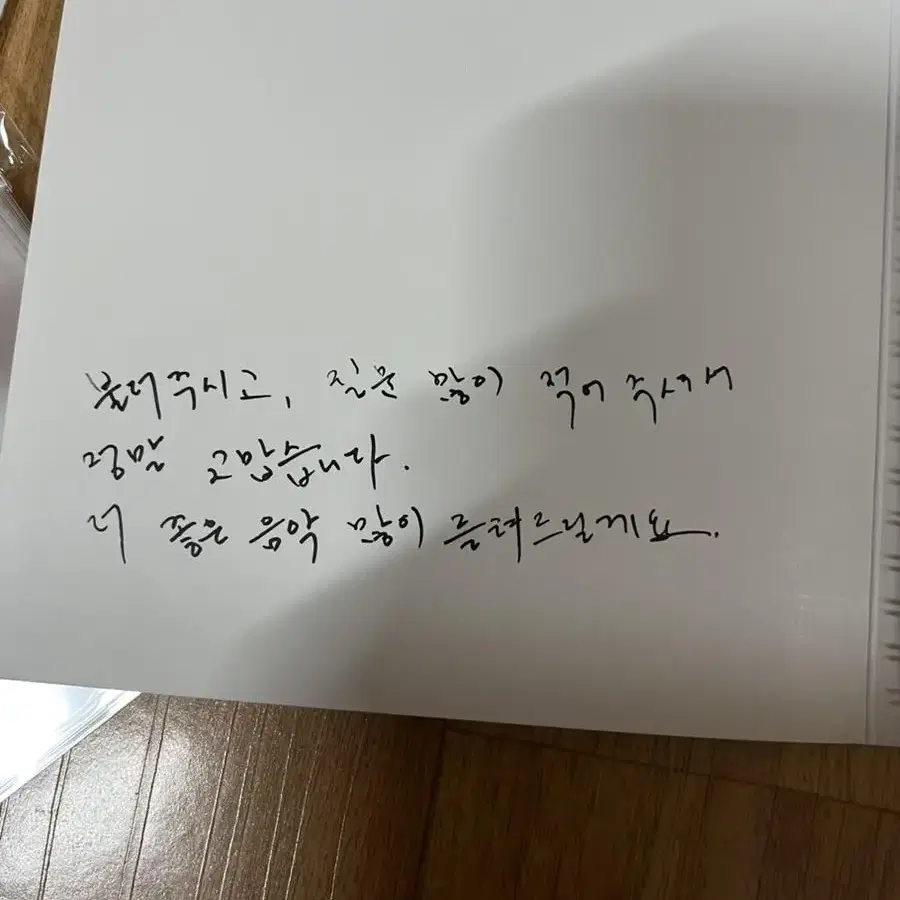 불러주시고, 질문 많이 적어 주셔서
정말 고맙습니다.
더 좋은 음악 많이 들려드릴게요.